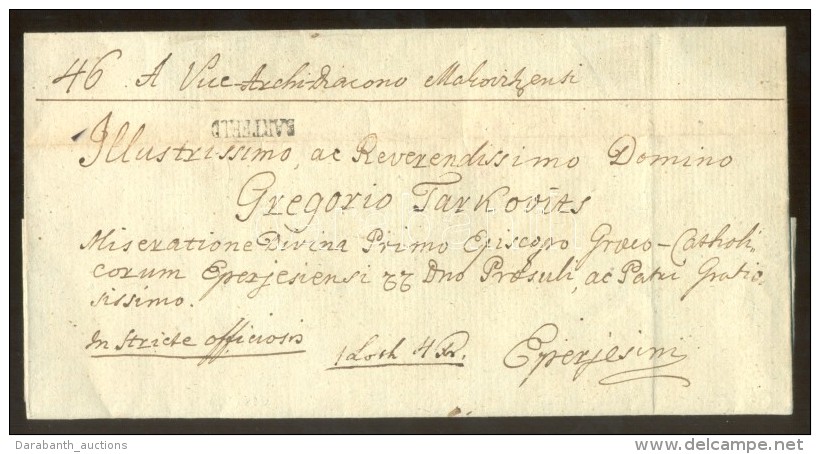 46 A Vice Archi-Diacono Makovitzensi
BARTFELD
Illustrissimo, ac Reverendissimo Domino
Gregorio Tarkovits
Miseratione Divina Primo Episcopo Græco-Catholi-
corum Eperjesiensi Dno Præsuli, ac Patri Gratio-
sissimo.
In Stricte officiosis
1 Loth
Eperjesini
Darabanth_auctions
delcampe.net